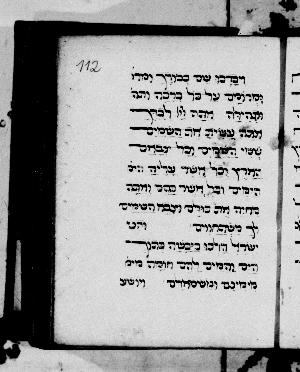 112
ויברכו שם כבודך ומרו
ומרומם על כל ברכה ותה
ותהילה אתה לבדך
אתה עשית את השמים
שמי השמים וכל צבאם
הארץ וכל אשר עליה הימ
הימים וכל אשר בהם ואתה
מחיה את כולם וצבא השמים
לך משתחוים ובני
ישראל הלכו ביבשה בתוך
הים והמים להם חומה מימ
מימינם ומשמאלם ויושע